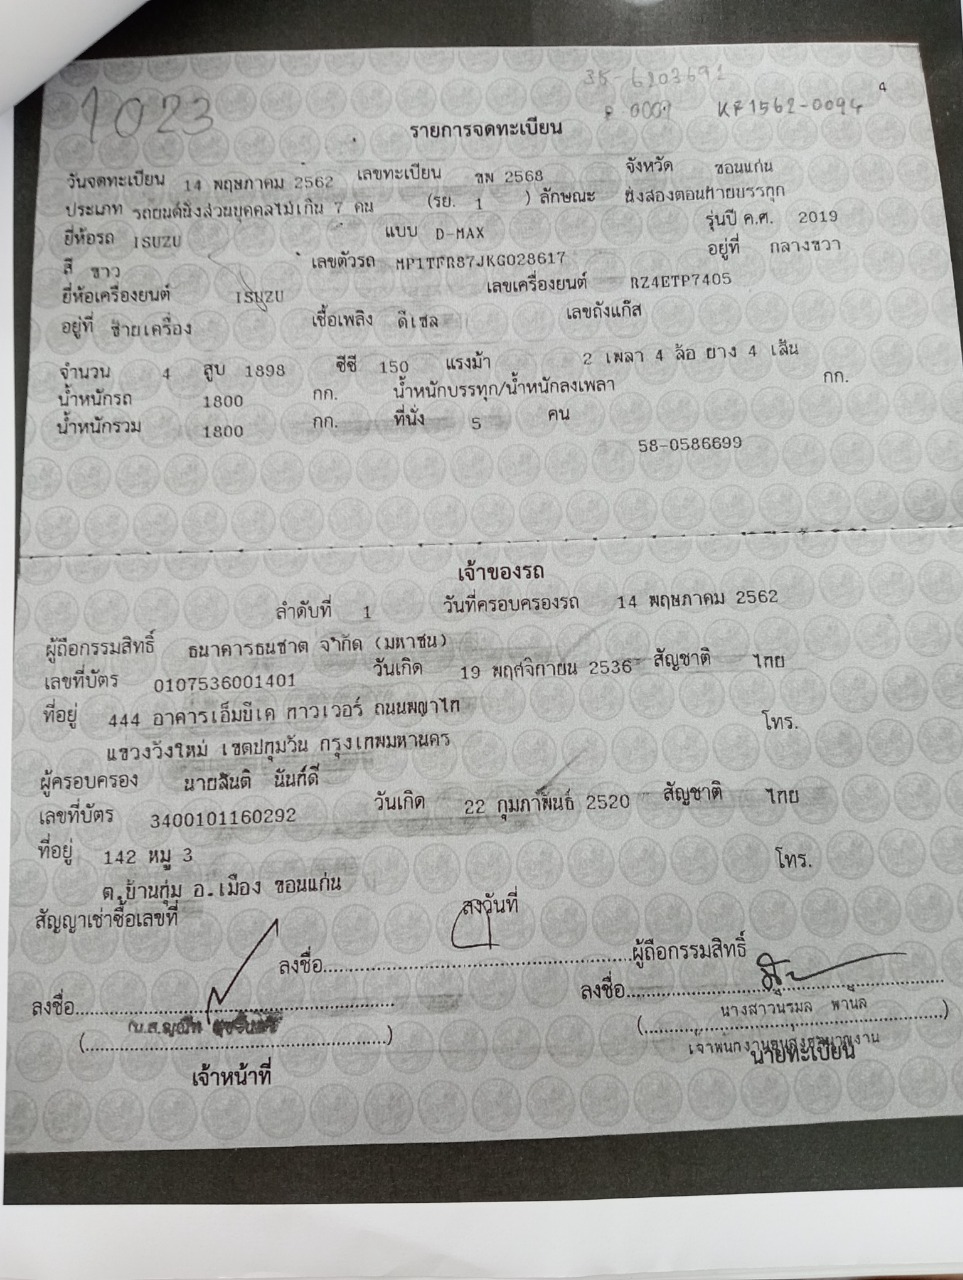 4
1023
35-6203691
P 0009 KF1562-0094
รายการจดทะเบียน
วันจดทะเบียน 14 พฤษภาคม 2562 เลขทะเบียน ขพ 2568 จังหวัด ขอนแก่น
ประเภท รถยนต์นั่งส่วนบุคคลไม่เกิน 7 คน (รย. 1 ) ลักษณะ นั่งสองตอนท้ายบรรทุก
ยี่ห้อรถ ISUZU แบบ D-MAX รุ่นปี ค.ศ. 2019
สี ขาว เลขตัวรถ MP1TFR87JKG028617 อยู่ที่ กลางขวา
ยี่ห้อเครื่องยนต์ ISUZU เลขเครื่องยนต์ RZ4ETP7405
อยู่ที่ ซ้ายเครื่อง เชื้อเพลิง ดีเซล เลขถังแก๊ส
จำนวน 4 สูบ 1898 ซีซี 150 แรงม้า 2 เพลา 4 ล้อ ยาง 4 เส้น
น้ำหนักรถ 1800 กก. น้ำหนักบรรทุก/น้ำหนักลงเพลา กก.
น้ำหนักรวม 1800 กก. ที่นั่ง 5 คน
58-0586699
เจ้าของรถ
ลำดับที่ 1 วันที่ครอบครองรถ 14 พฤษภาคม 2562
ผู้ถือกรรมสิทธิ์ ธนาคารธนชาต จำกัด (มหาชน)
เลขที่บัตร 0107536001401 วันเกิด 19 พฤศจิกายน 2536 สัญชาติ ไทย
ที่อยู่ 444 อาคารเอ็มบีเค ทาวเวอร์ ถนนพญาไท โทร.
แขวงวังใหม่ เขตปทุมวัน กรุงเทพมหานคร
ผู้ครอบครอง นายสันติ นันท์ดี
เลขที่บัตร 3400101160292 วันเกิด 22 กุมภาพันธ์ 2520 สัญชาติ ไทย
ที่อยู่ 142 หมู่ 3 โทร.
ต.บ้านทุ่ม อ.เมือง ขอนแก่น
สัญญาเช่าซื้อเลขที่ ลงวันที่
ลงชื่อ ผู้ถือกรรมสิทธิ์
ลงชื่อ ลงชื่อ
นางสาวนรมล
(....) (....)
เจ้าหน้าที่ นายทะเบียน